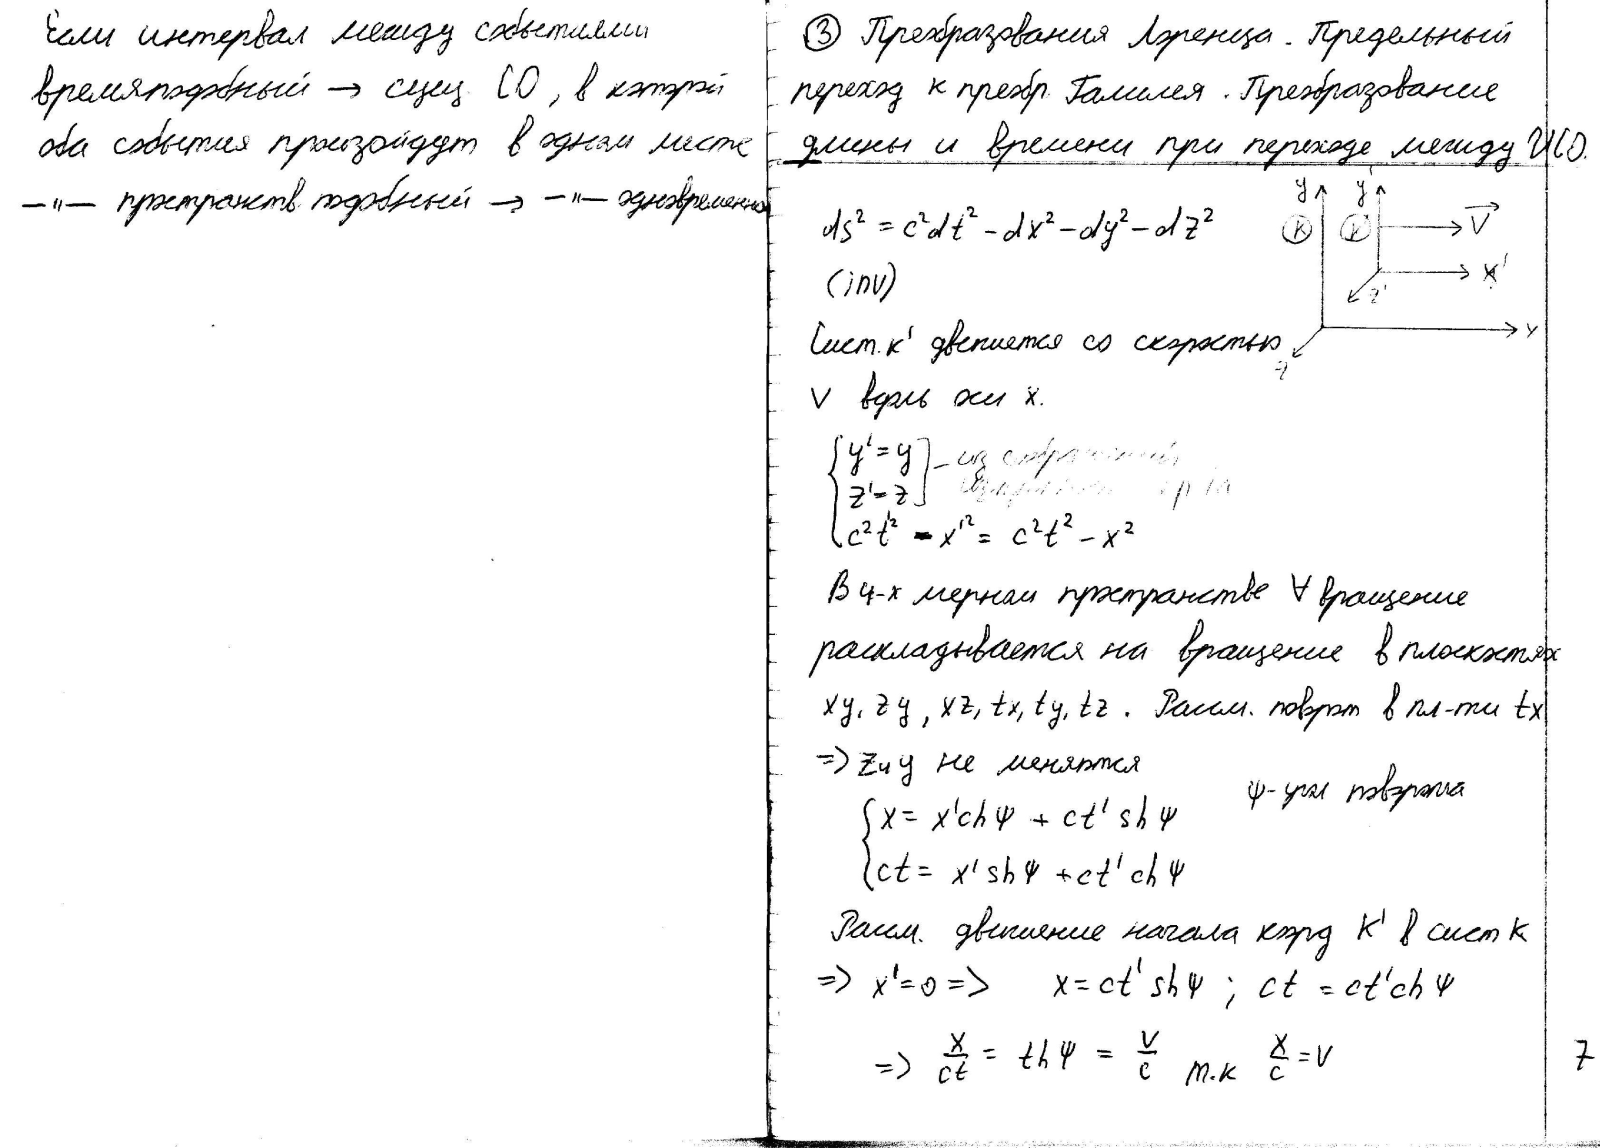 Если интервал между событиями
времяподобный → сущ СО, в которой
оба события произойдут в одном месте
—"— пространств. подобный → —"— одновременно
③ Преобразования Лоренца. Предельный
переход к преобр. Галилея. Преобразование
длины и времени при переходе между ИСО.
ds² = c²dt² - dx² - dy² - dz²
(inv)
y y' K K' V x' z' x z
Сист. K' движется со скоростью
V вдоль оси x.
y' = y
z' = z
- из соображений
c²t'² - x'² = c²t² - x²
В 4-х мерном пространстве ∀ вращение
раскладывается на вращение в плоскостях
xy, zy, xz, tx, ty, tz. Рассм. поворот в пл-ти tx
=> z и y не меняются
ψ - угол поворота
x = x'ch ψ + ct' sh ψ
ct = x' sh ψ + ct' ch ψ
Рассм. движение начала коорд K' в сист K
=> x' = 0 => x = ct' sh ψ ; ct = ct' ch ψ
=> x/ct = th ψ = V/c т.к x/c = V
7